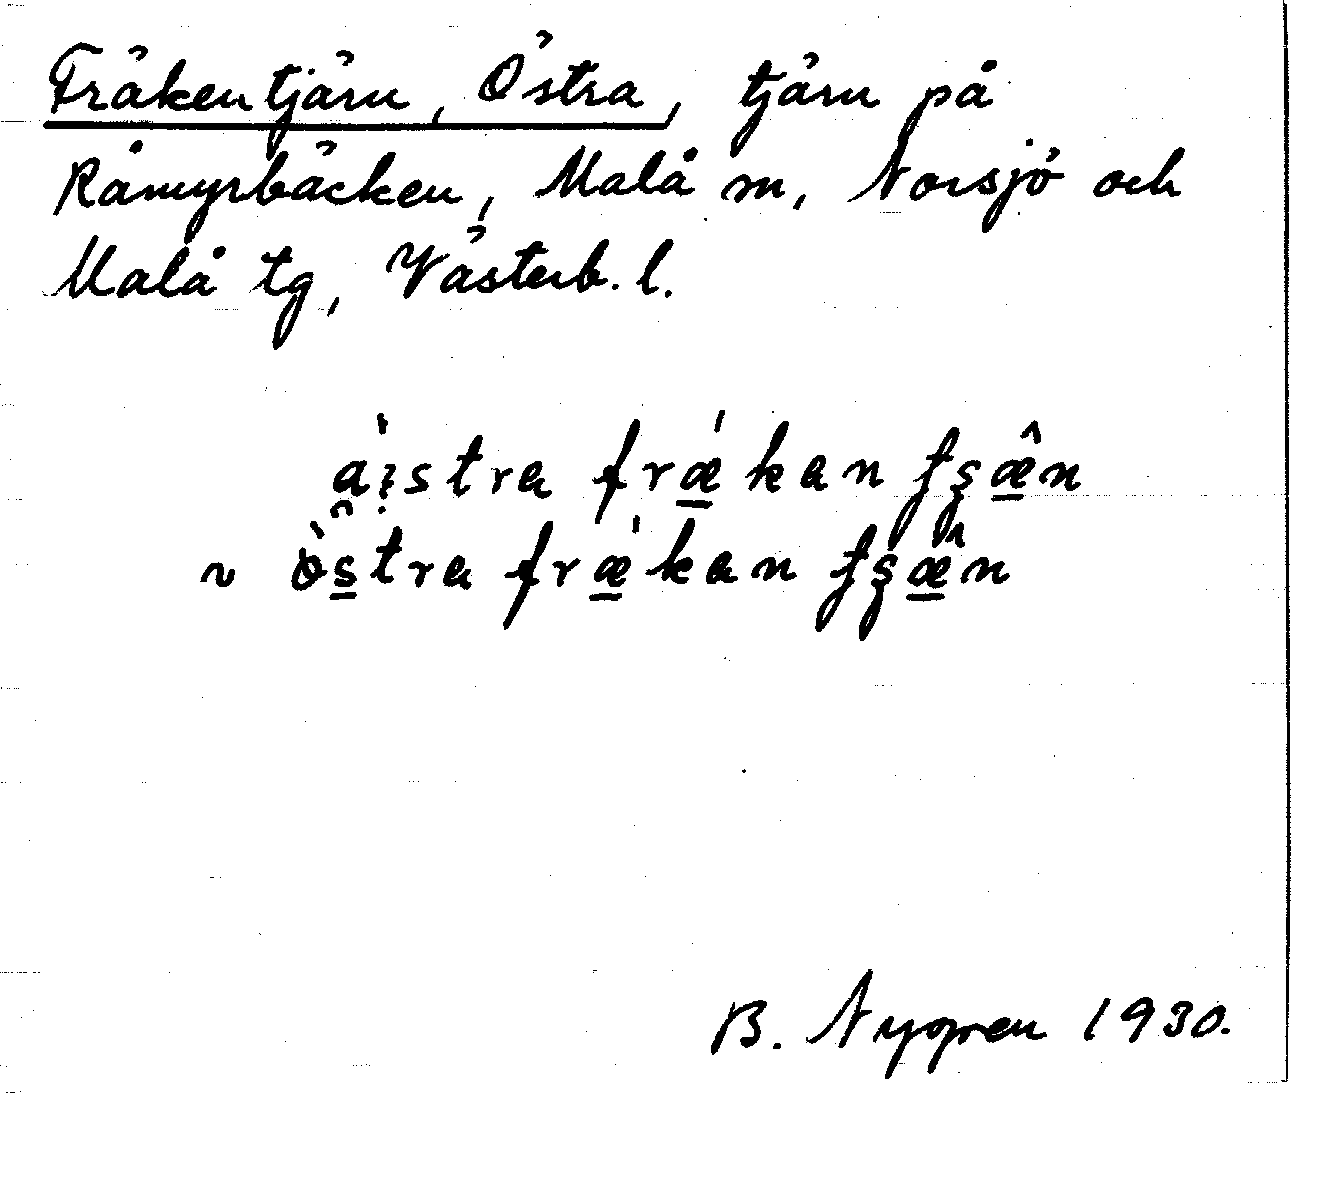 Fräkentjärn, Östra, tjärn på
Råmyrbäcken, Malå m, Norsjö och
Malå tg, Västerb. l.
àistra frækan tʂæ̂n
~ östra frækan tʂæ̂n
B. Nygren 1930.